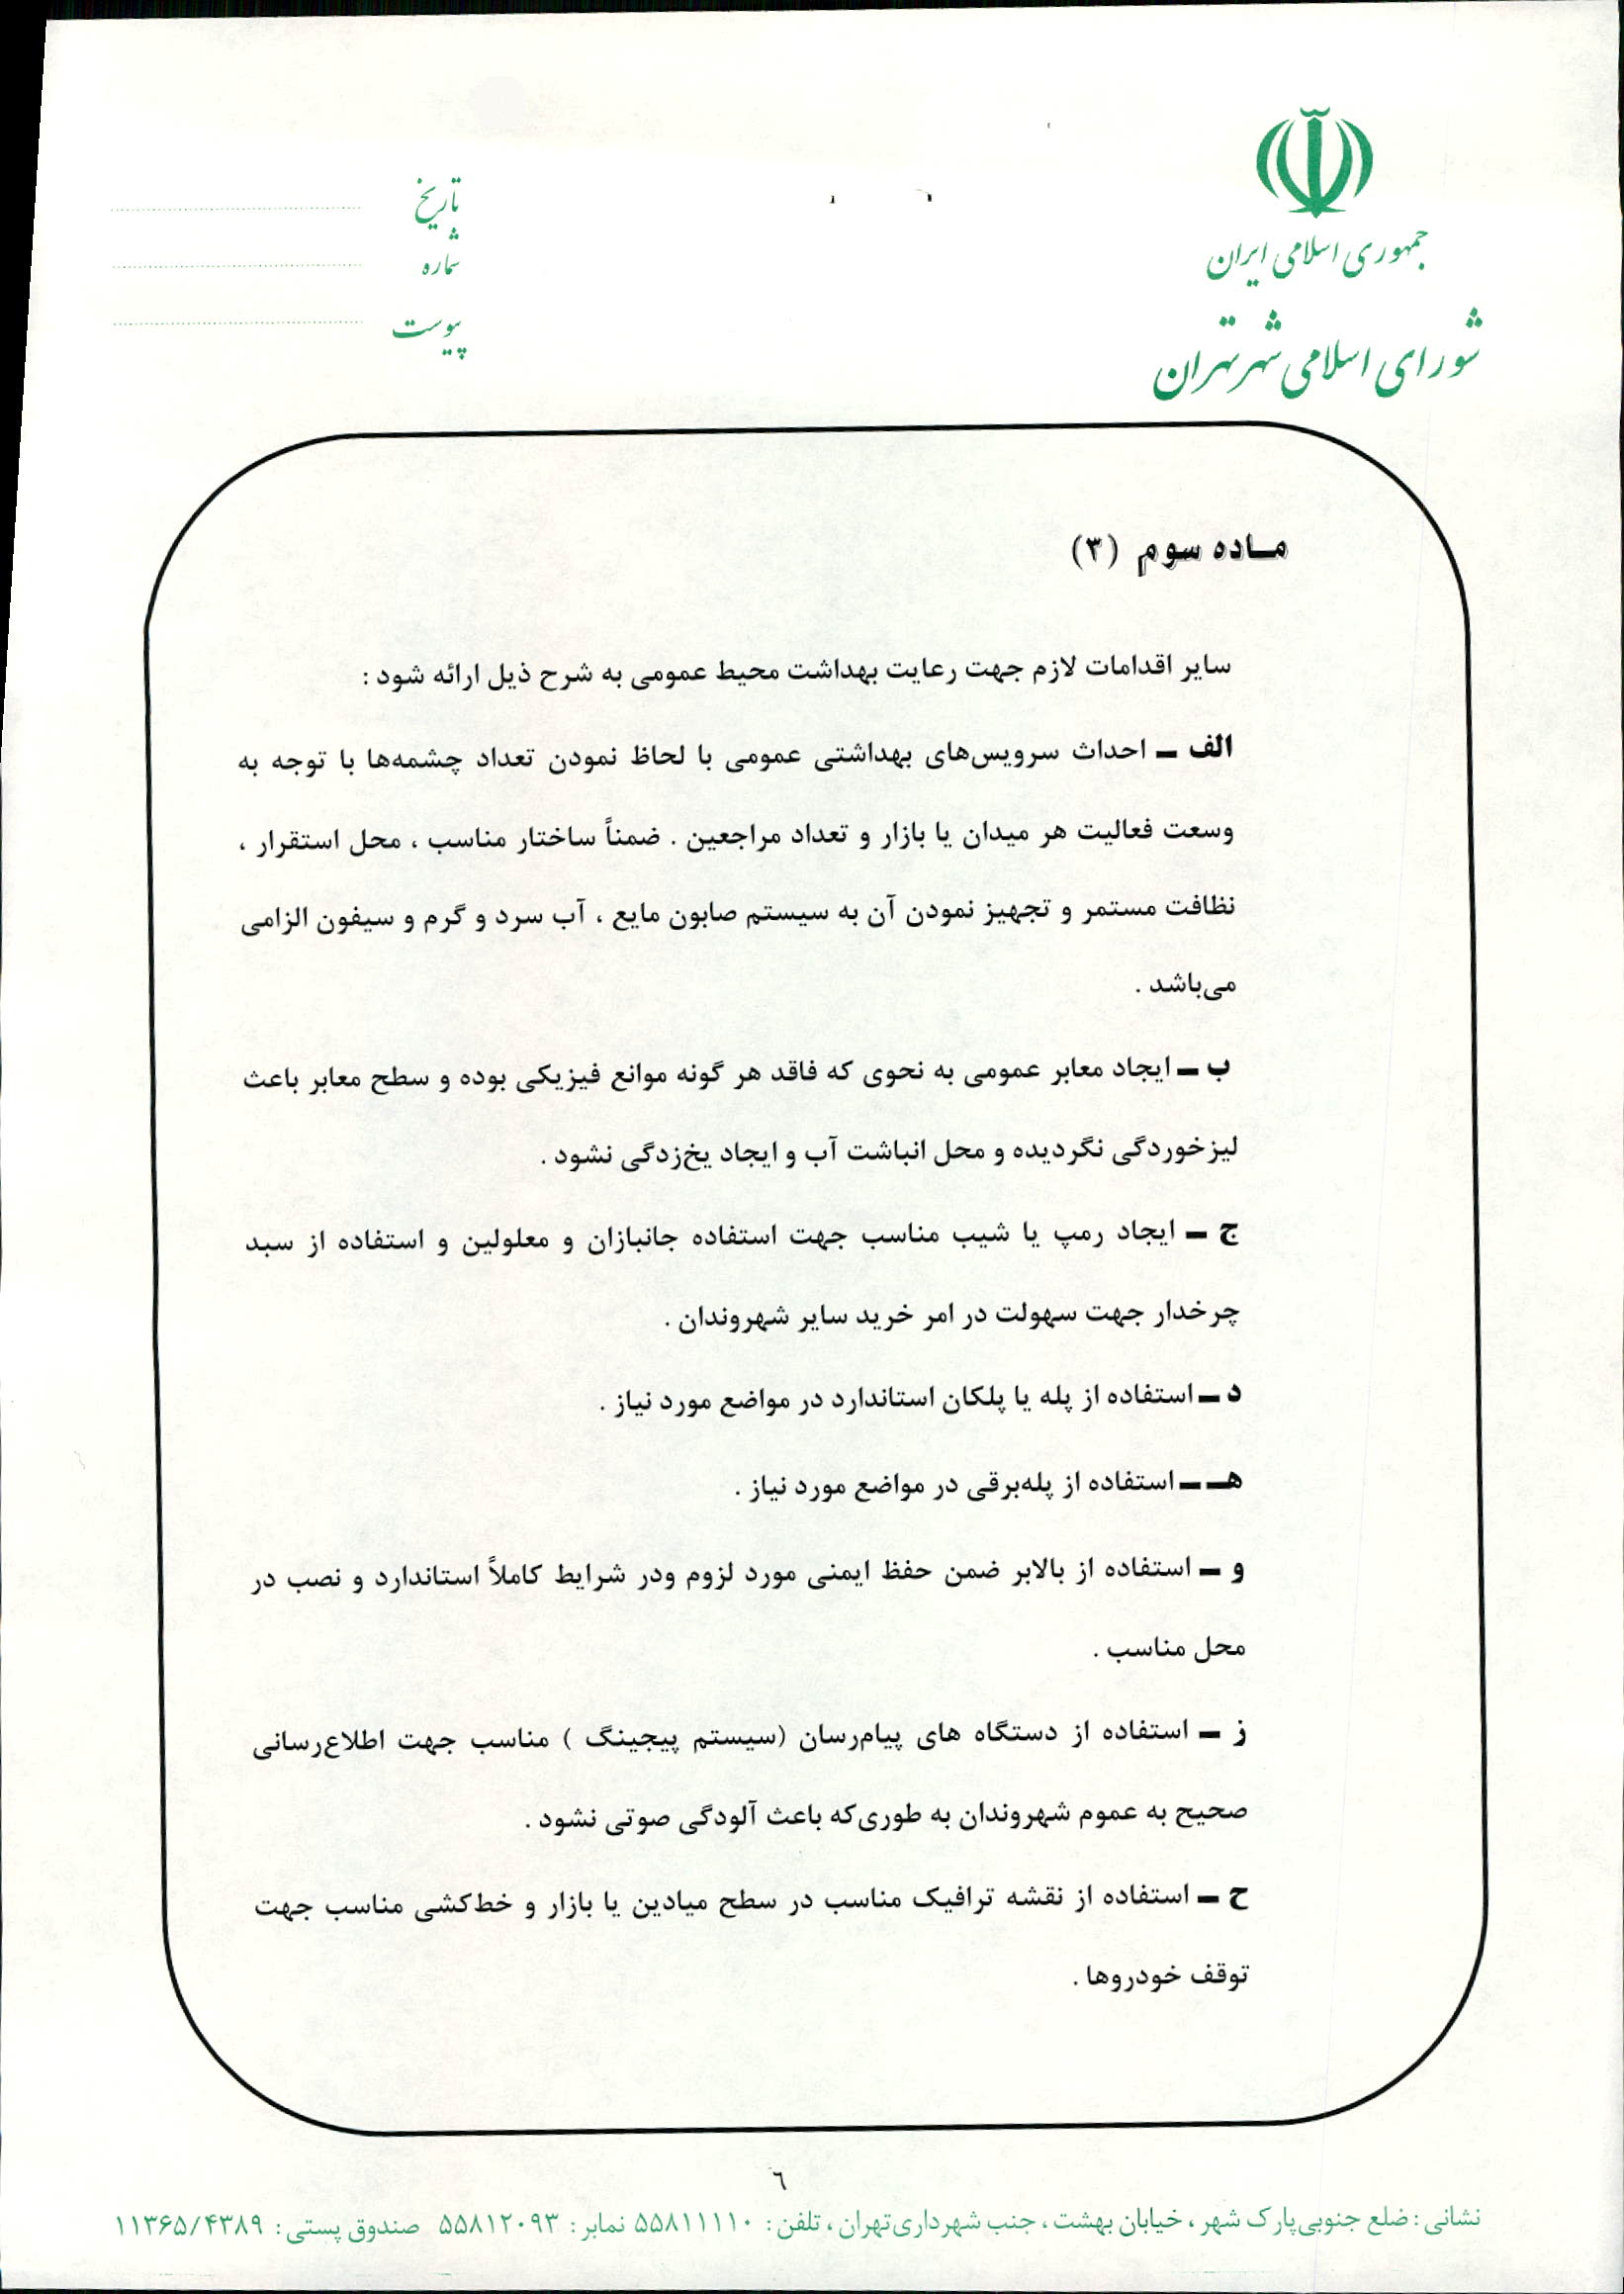 جمهوری اسلامی ایران
شورای اسلامی شهر تهران
تاریخ
شماره
پیوست
ماده سوم (۳)
سایر اقدامات لازم جهت رعایت بهداشت محیط عمومی به شرح ذیل ارائه شود :
الف – احداث سرویس‌های بهداشتی عمومی با لحاظ نمودن تعداد چشمه‌ها با توجه به
وسعت فعالیت هر میدان یا بازار و تعداد مراجعین . ضمناً ساختار مناسب ، محل استقرار ،
نظافت مستمر و تجهیز نمودن آن به سیستم صابون مایع ، آب سرد و گرم و سیفون الزامی
می‌باشد .
ب – ایجاد معابر عمومی به نحوی که فاقد هر گونه موانع فیزیکی بوده و سطح معابر باعث
لیزخوردگی نگردیده و محل انباشت آب و ایجاد یخ‌زدگی نشود .
ج – ایجاد رمپ یا شیب مناسب جهت استفاده جانبازان و معلولین و استفاده از سبد
چرخدار جهت سهولت در امر خرید سایر شهروندان .
د – استفاده از پله یا پلکان استاندارد در مواضع مورد نیاز .
هـ – استفاده از پله‌برقی در مواضع مورد نیاز .
و – استفاده از بالابر ضمن حفظ ایمنی مورد لزوم ودر شرایط کاملاً استاندارد و نصب در
محل مناسب .
ز – استفاده از دستگاه های پیام‌رسان (سیستم پیجینگ ) مناسب جهت اطلاع‌رسانی
صحیح به عموم شهروندان به طوری‌که باعث آلودگی صوتی نشود .
ح – استفاده از نقشه ترافیک مناسب در سطح میادین یا بازار و خط‌کشی مناسب جهت
توقف خودروها .
٦
نشانی : ضلع جنوبی‌پارک شهر ، خیابان بهشت ، جنب شهرداری‌تهران ، تلفن : ۵۵۸۱۱۱۱۰ نمابر : ۵۵۸۱۲۰۹۳ صندوق پستی : ۱۱۳۶۵/۴۳۸۹